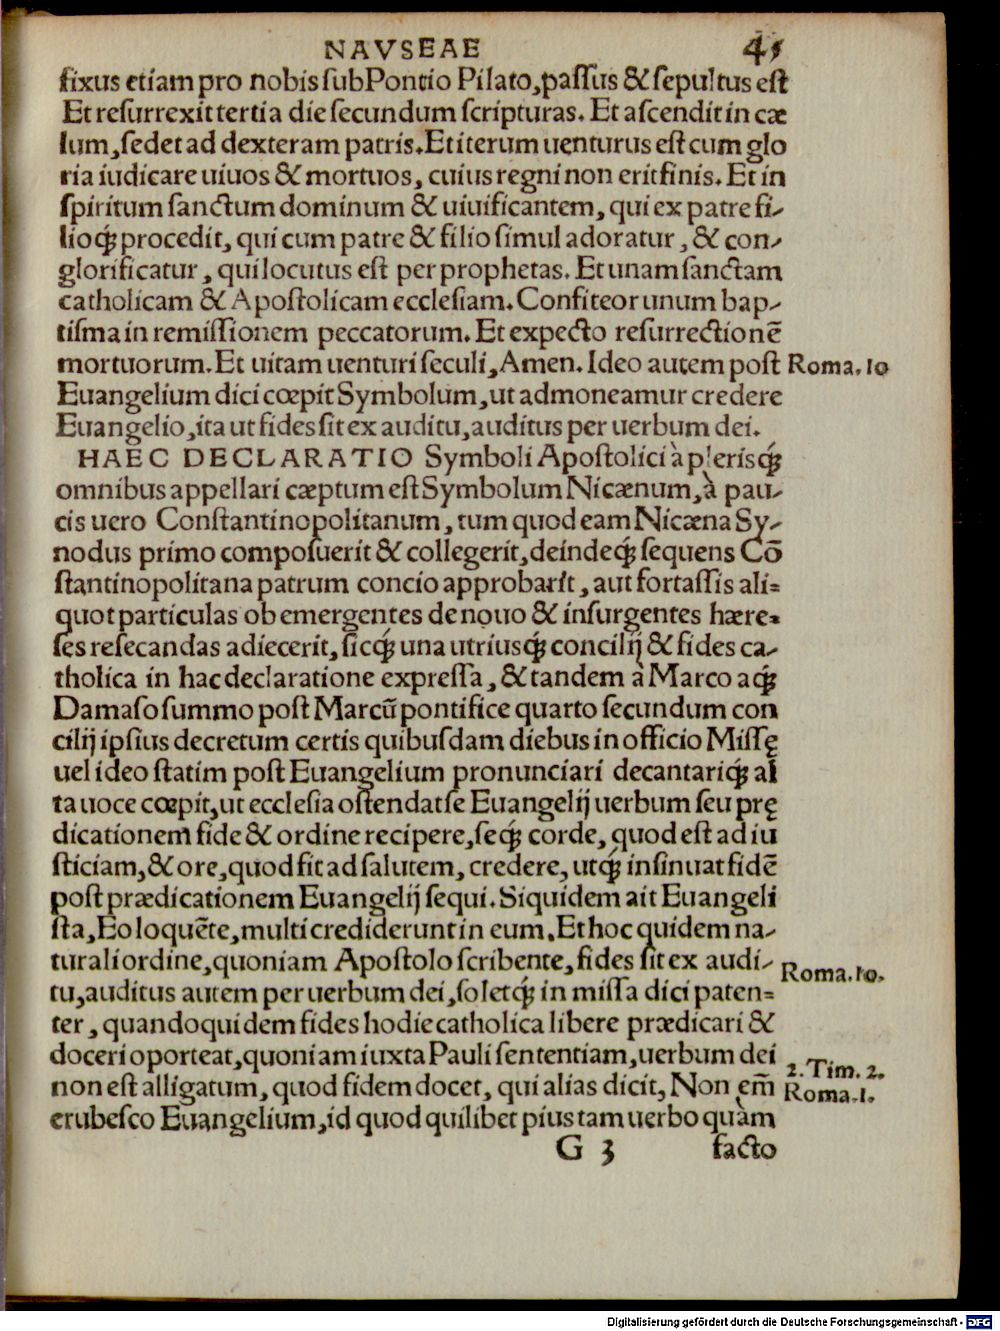 NAVSEAE 45
fixus etiam pro nobis sub Pontio Pilato, passus & sepultus est
Et resurrexit tertia die secundum scripturas. Et ascendit in cæ
lum, sedet ad dexteram patris. Et iterum uenturus est cum glo
ria iudicare uiuos & mortuos, cuius regni non erit finis. Et in
spiritum sanctum dominum & uiuificantem, qui ex patre fi-
lioq́; procedit, qui cum patre & filio simul adoratur, & con-
glorificatur, qui locutus est per prophetas. Et unam sanctam
catholicam & Apostolicam ecclesiam. Confiteor unum bap-
tisma in remissionem peccatorum. Et expecto resurrectionē
mortuorum. Et uitam uenturi seculi, Amen. Ideo autem post Roma. 10
Euangelium dici cœpit Symbolum, ut admoneamur credere
Euangelio, ita ut fides sit ex auditu, auditus per uerbum dei.
HAEC DECLARATIO Symboli Apostolici à plerisq́;
omnibus appellari cæptum est Symbolum Nicænum, à pau-
cis uero Constantinopolitanum, tum quod eam Nicæna Sy-
nodus primo composuerit & collegerit, deindeq́; sequens Cō
stantinopolitana patrum concio approbarit, aut fortassis ali=
quot particulas ob emergentes de nouo & insurgentes hære-
ses resecandas adiecerit, sicq́; una utriusq́; concilij & fides ca-
tholica in hac declaratione expressa, & tandem à Marco acq́;
Damaso summo post Marcū pontifice quarto secundum con
cilij ipsius decretum certis quibusdam diebus in officio Missę
uel ideo statim post Euangelium pronunciari decantariq́; al
ta uoce cœpit, ut ecclesia ostendat se Euangelij uerbum seu prę
dicationem fide & ordine recipere, seq́; corde, quod est ad iu
sticiam, & ore, quod fit ad salutem, credere, utq́; insinuat fidē
post prædicationem Euangelij sequi. Siquidem ait Euangeli
sta, Eo loquēte, multi crediderunt in eum. Et hoc quidem na-
turali ordine, quoniam Apostolo scribente, fides sit ex audi- Roma. 10.
tu, auditus autem per uerbum dei, soletq́; in missa dici paten=
ter, quandoquidem fides hodie catholica libere prædicari &
doceri oporteat, quoniam iuxta Pauli sententiam, uerbum dei 2. Tim. 2.
non est alligatum, quod fidem docet, qui alias dicit, Non em̄ Roma. 1.
erubesco Euangelium, id quod quilibet pius tam uerbo quàm
G 3 facto
Digitalisierung gefördert durch die Deutsche Forschungsgemeinschaft - DFG